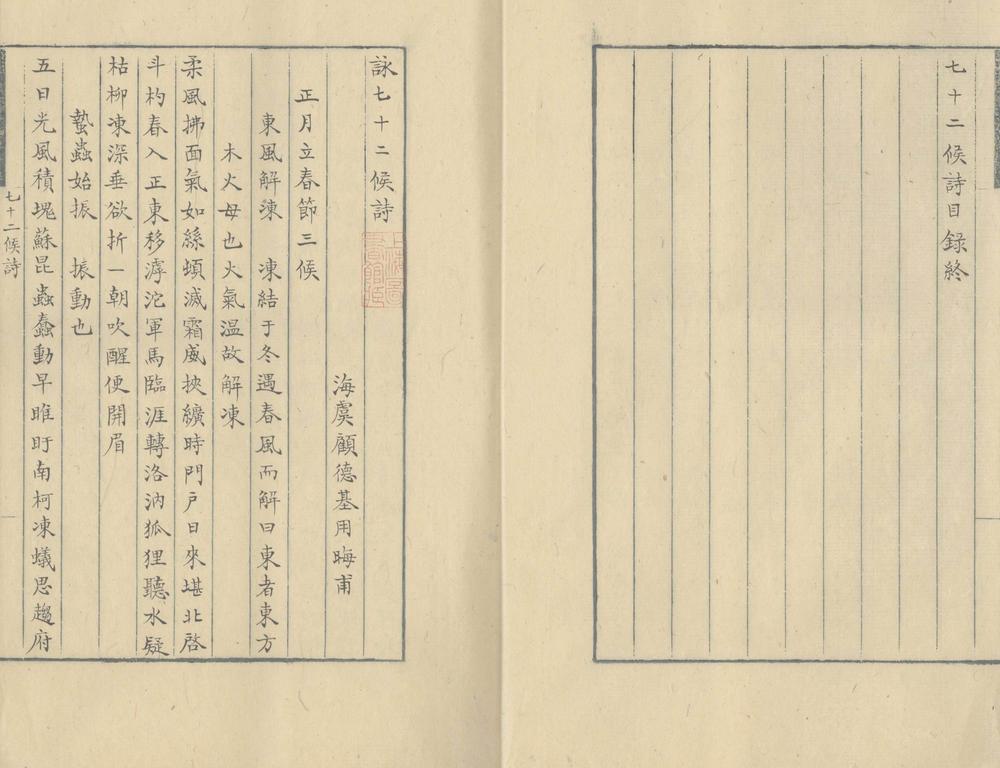 七十二候詩目錄終
詠七十二候詩
海虞顧德基用晦甫
正月立春節三候
東風解凍 凍結于冬遇春風而解曰東者東方
木火母也火氣温故解凍
柔風拂面氣如絲頓減霜威挾纊時門戸日來堪北啓
斗杓春入正東移滹沱軍馬臨涯轉洛汭狐狸聽水疑
枯柳凍深垂欲折一朝吹醒便開眉
蟄蟲始振 振動也
五日光風積塊蘇昆蟲蠢動早睢盱南柯凍蟻思趨府
七十二候詩